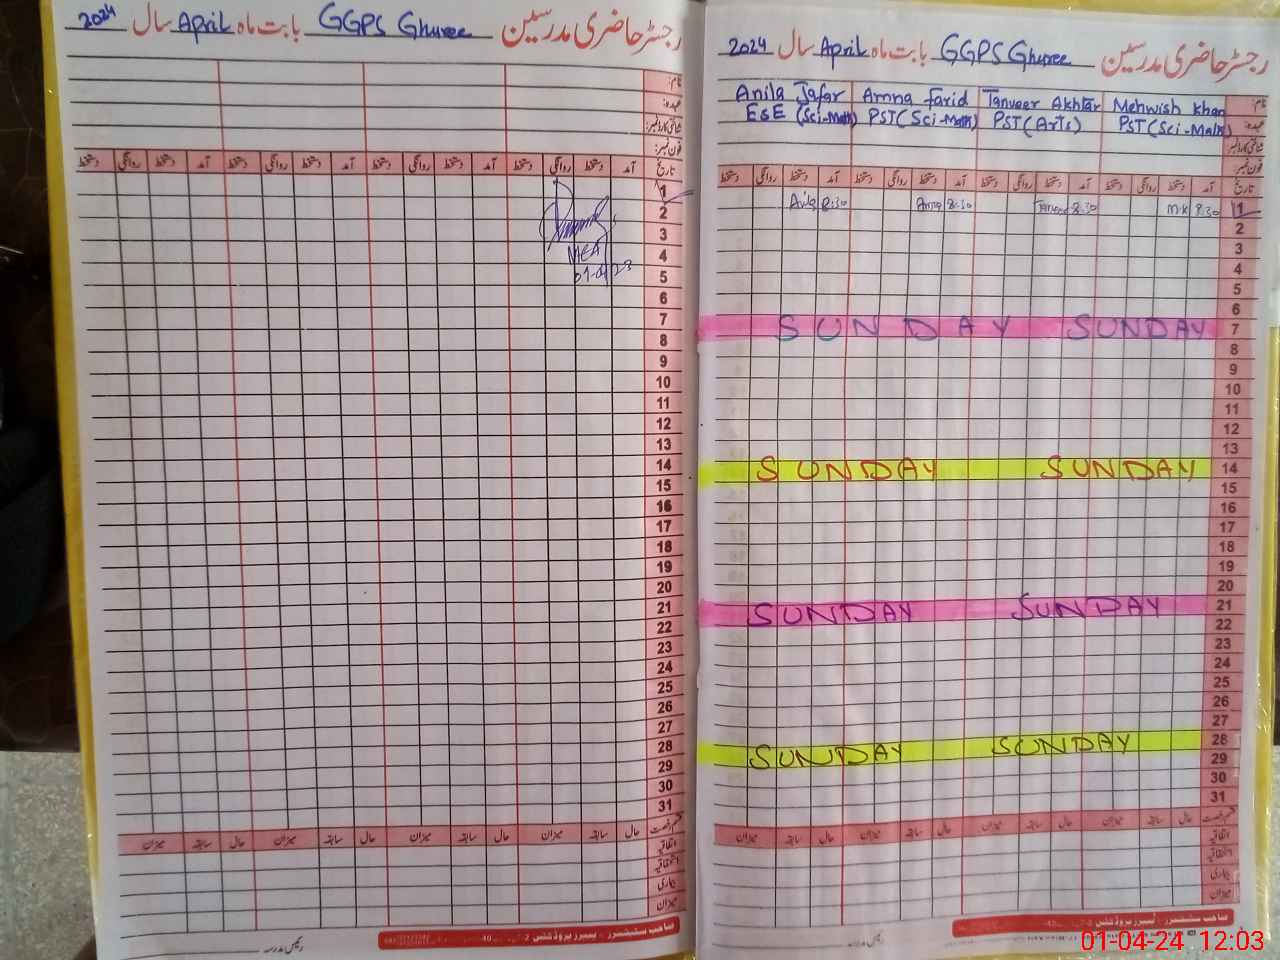 رجسٹر حاضری مدرسین GGPS Ghuree بابت ماہ April سال 2024
نام:
عہدہ:
شناختی کارڈ نمبر:
فون نمبر:
تاریخ آمد دستخط روانگی دستخط آمد دستخط روانگی دستخط آمد دستخط روانگی دستخط آمد دستخط روانگی دستخط
1
2
3
4 MEA
5
6
7
8
9
10
11
12
13
14
15
16
17
18
19
20
21
22
23
24
25
26
27
28
29
30
31
قسم رخصت حال سابقہ میزان حال سابقہ میزان حال سابقہ میزان حال سابقہ میزان
اتفاقیہ
استحقاقیہ
بیماری
میزان
رئیس مدرسہ
رجسٹر حاضری مدرسین GGPS Ghuree بابت ماہ April سال 2024
نام: Anila Jafar Amna farid Tanveer Akhtar Mehwish khan
عہدہ: ESE (Sci-Math) PST (Sci-Math) PST (Arts) PST (Sci-Math)
شناختی کارڈ نمبر:
فون نمبر:
تاریخ آمد دستخط روانگی دستخط آمد دستخط روانگی دستخط آمد دستخط روانگی دستخط آمد دستخط روانگی دستخط
1 Anila 8:30 Amna 8:30 Tanveer 8:30 M.K 8:30
2
3
4
5
6
7 SUNDAY SUNDAY
8
9
10
11
12
13
14 SUNDAY SUNDAY
15
16
17
18
19
20
21 SUNDAY SUNDAY
22
23
24
25
26
27
28 SUNDAY SUNDAY
29
30
31
قسم رخصت حال سابقہ میزان حال سابقہ میزان حال سابقہ میزان حال سابقہ میزان
اتفاقیہ
استحقاقیہ
بیماری
میزان
رئیس مدرسہ
01-04-24 12:03